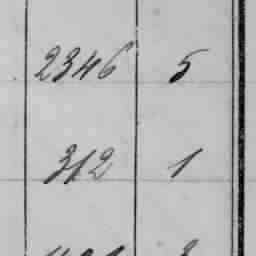 2346 5
312 1